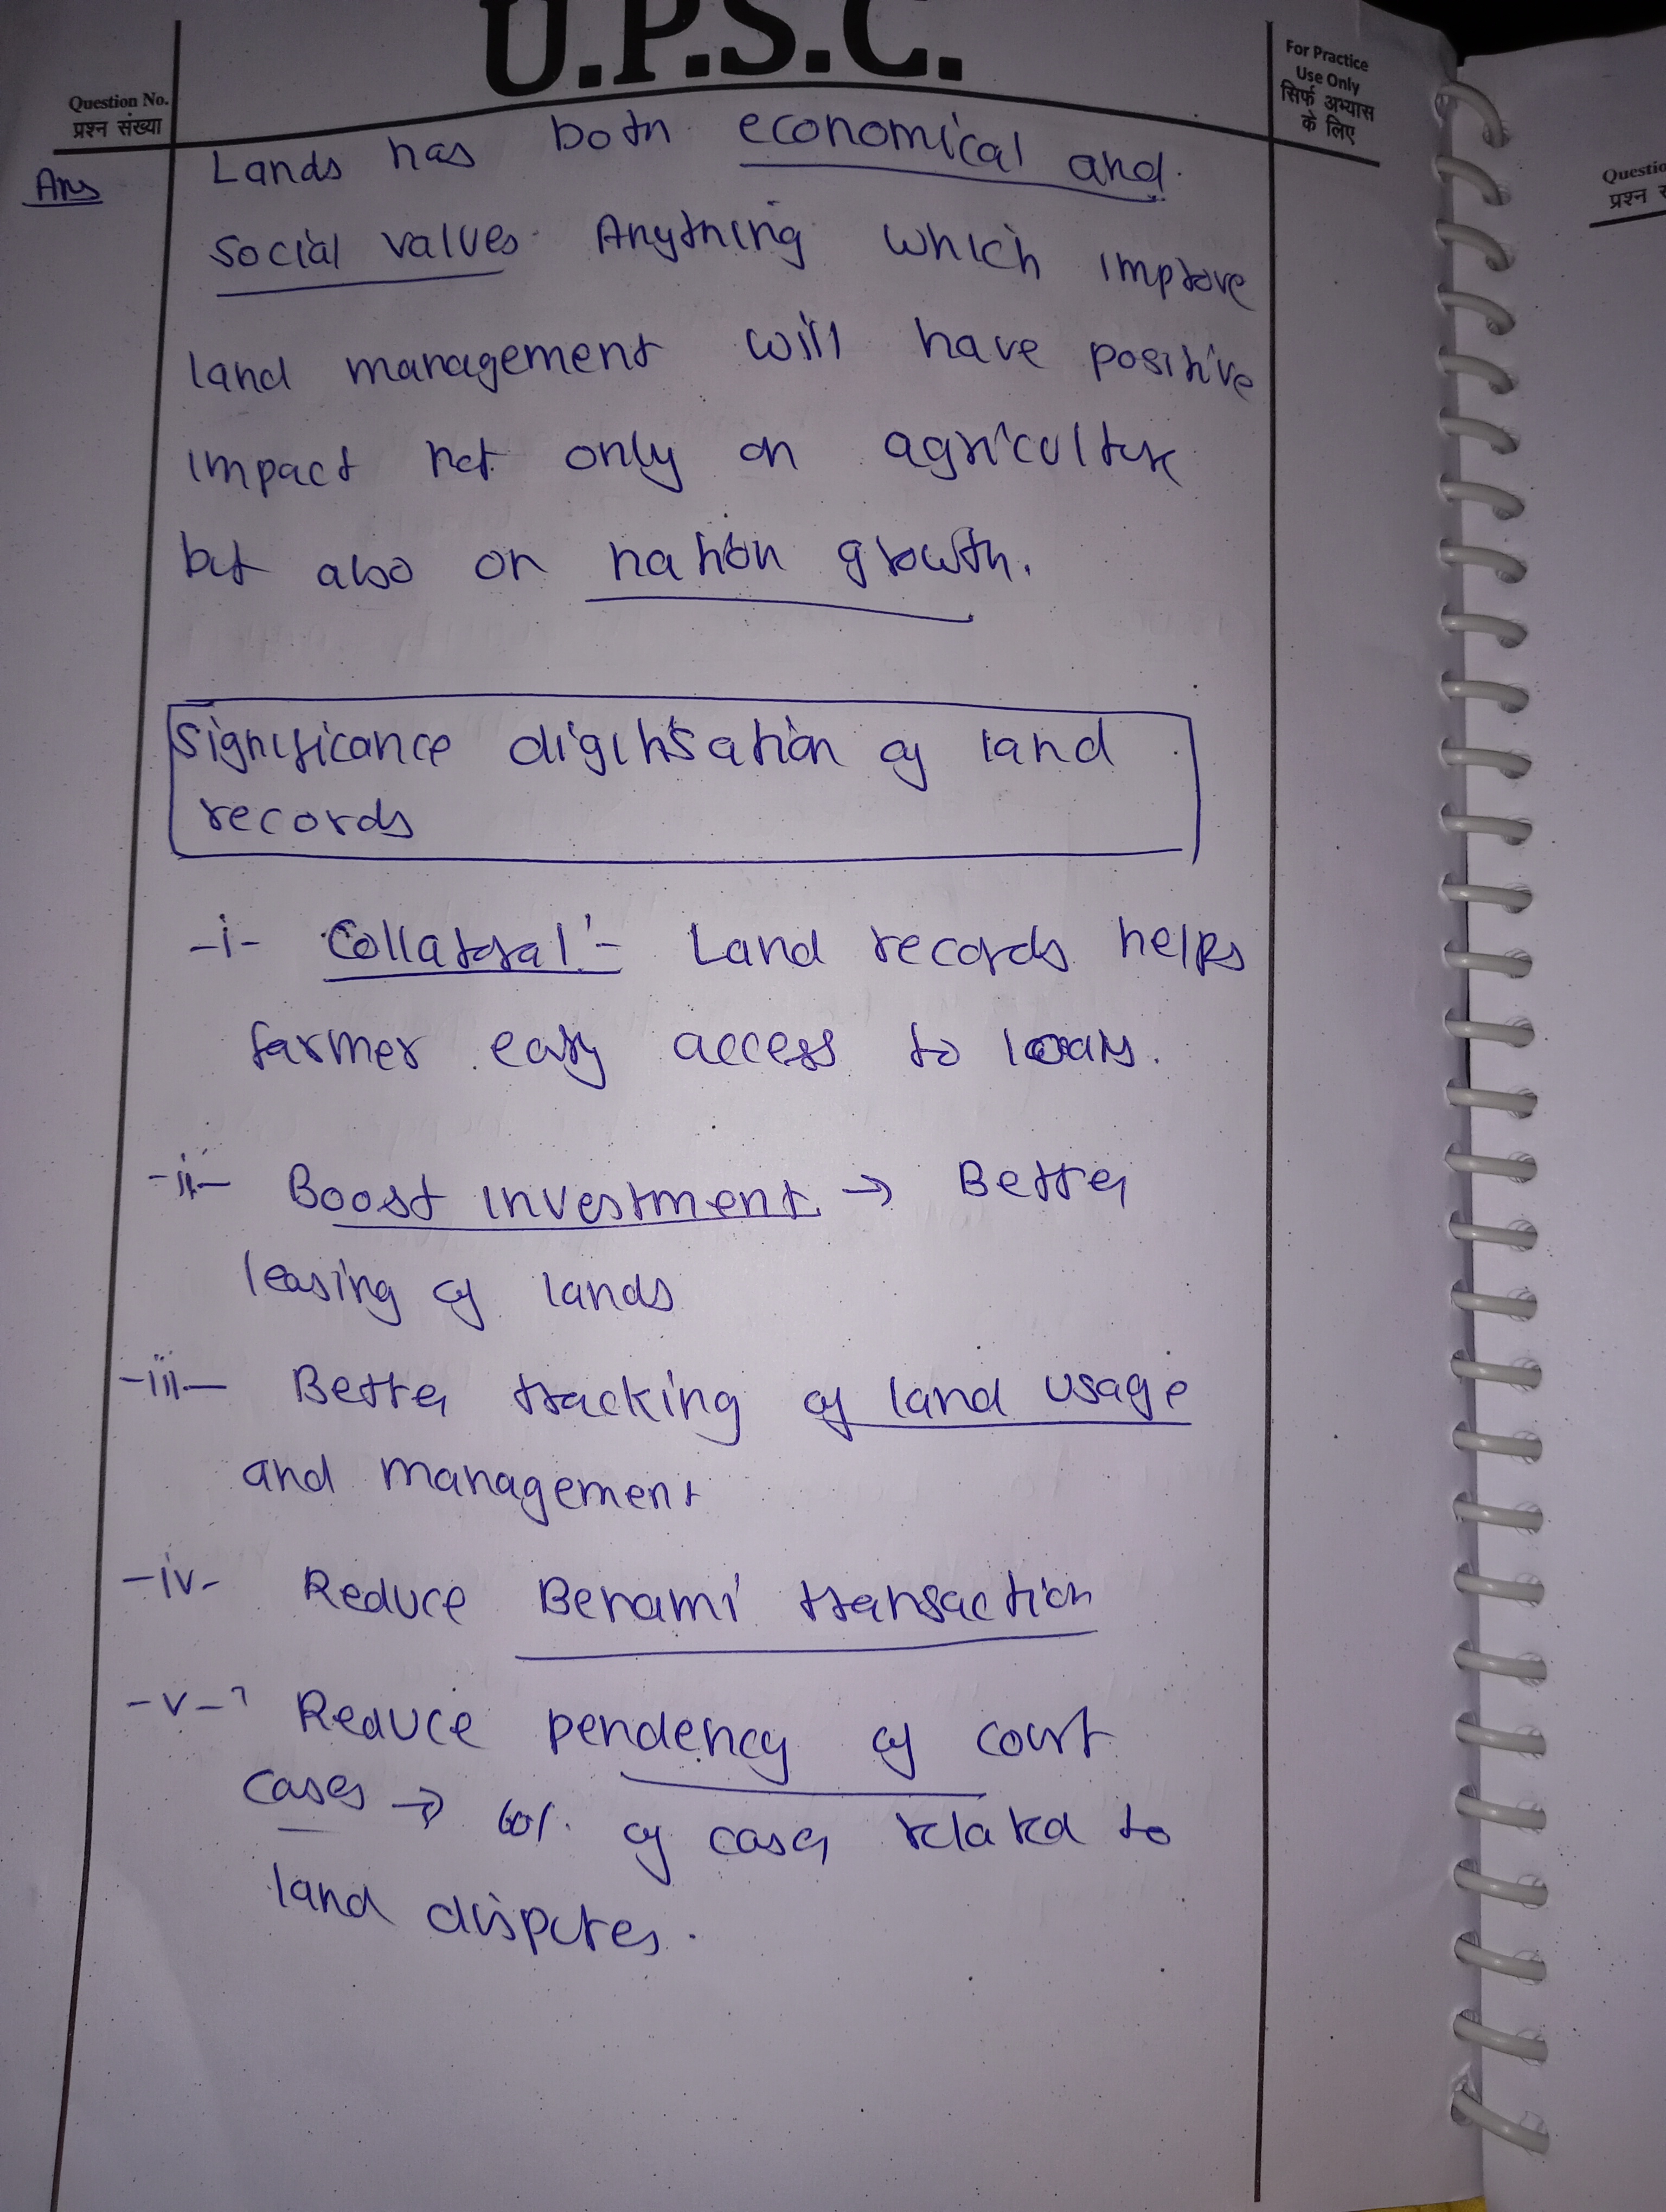 U.P.S.C.
Question No.
प्रश्न संख्या
For Practice
Use Only
सिर्फ अभ्यास
के लिए
Questio
प्रश्न
Ans
Lands has both economical and
social values. Anything which improve
land management will have positive
impact not only on agriculture
but also on nation growth.
Significance digitisation of land
records
-i- Collateral :- Land records helps
farmer easy access to loans.
-ii- Boost investment → Better
leasing of lands
-iii- Better tracking of land usage
and management
-iv- Reduce Benami transaction
-v- Reduce pendency of court
cases → 60% of cases related to
land disputes.